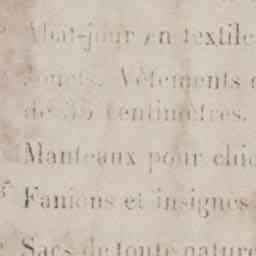 Abat-jour en textile
Jouets. Vêtements
de 35 centimètres.
Manteaux pour chie
Fanions et insignes
Sacs de toute nature